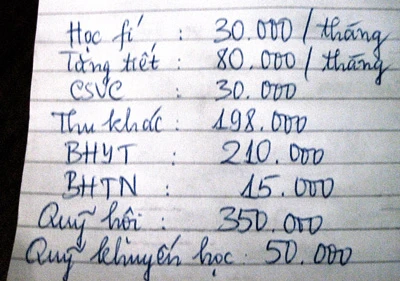 Học fí : 30.000 / tháng
Tăng tiết : 80.000 / tháng
CSVC : 30.000
Thu khác : 198.000
BHYT : 210.000
BHTN : 15.000
Quỹ hội : 350.000
Quỹ khuyến học : 50.000